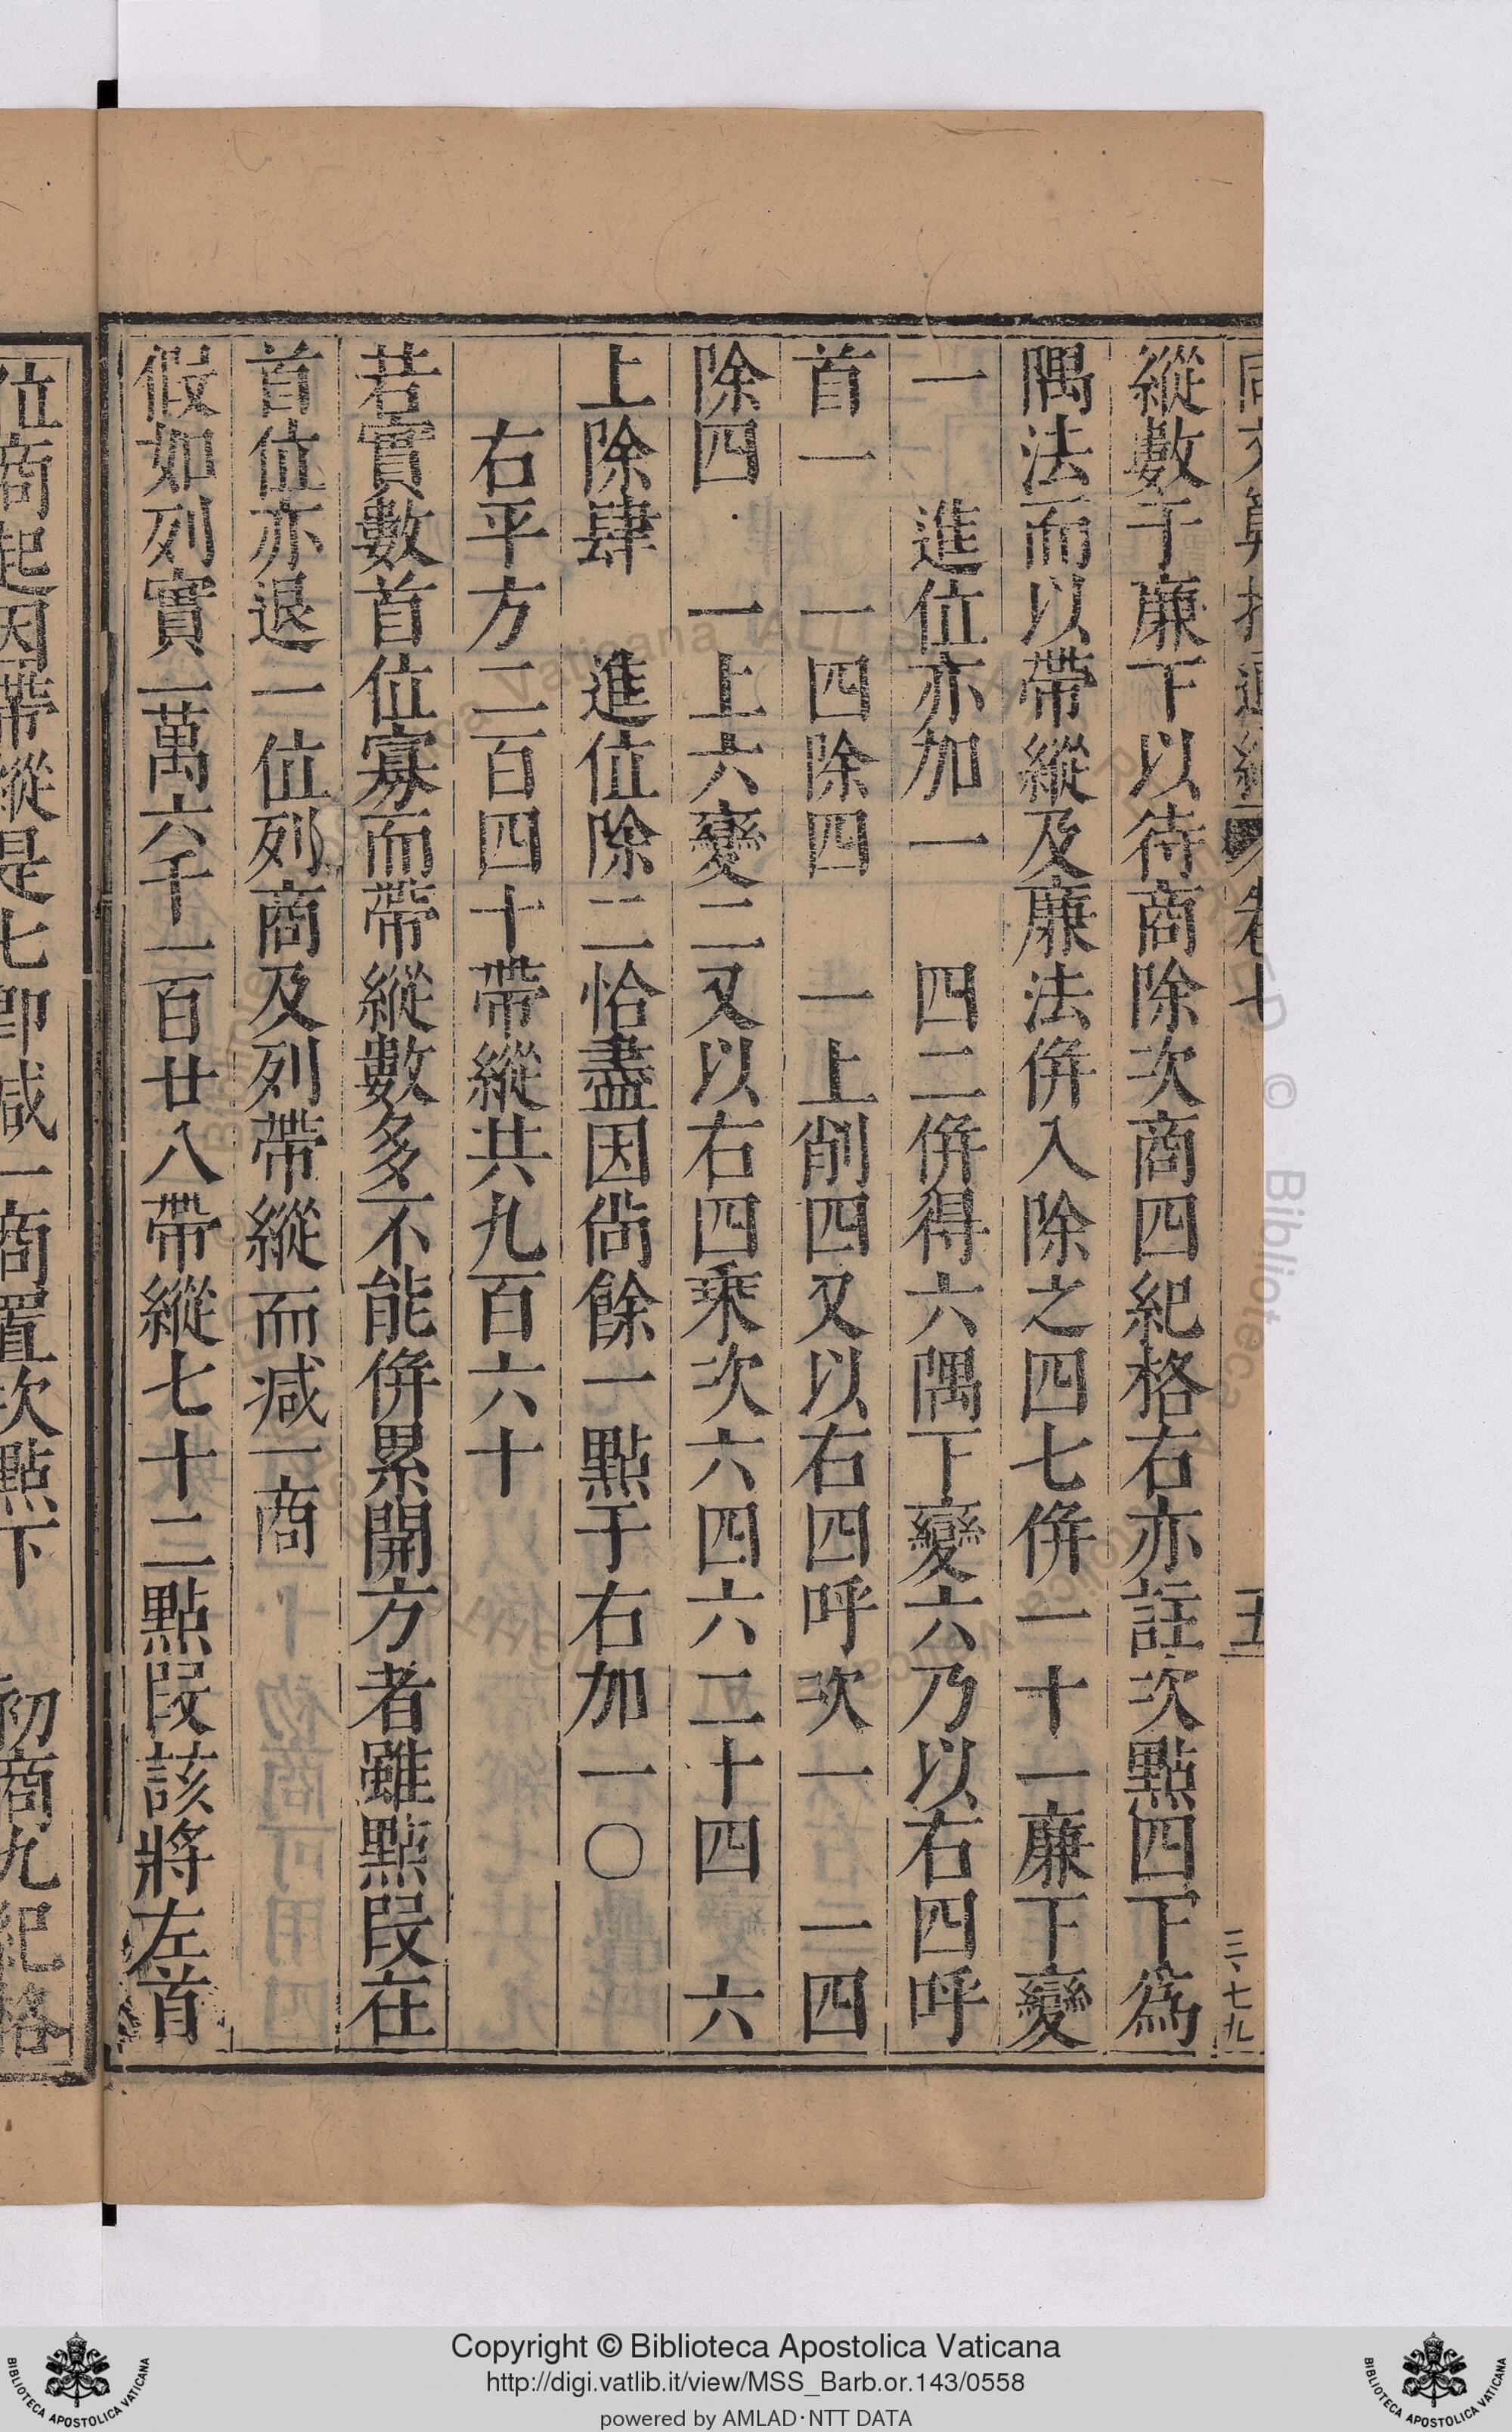 縱數于廉下以待商除次商四紀格右亦註次點四下爲
隅法而以帶縱及廉法併入除之四七併一十一廉下變
一　進位亦加一　四二併得六隅下變六乃以右四呼
首一　一四除四　一上削四又以右四呼次一　一四
除四　一上六變二又以右四乘次六四六二十四　六
上除肆　進位除二恰盡因尙餘一點于右加一〇
右平方二百四十帶縱共九百六十
若實數首位寡而帶縱數多不能併累開方者雖點段在
首位亦退一位列商及列帶縱而减一商
假如列實一萬六千一百廿八帶縱七十二點段該將左首
位商起因帶縱是七卽减一商置次點下　初商九紀格
卷七
五
三、七九
Copyright © Biblioteca Apostolica Vaticana
http://digi.vatlib.it/view/MSS_Barb.or.143/0558
powered by AMLAD·NTT DATA
BIBLIOTECA APOSTOLICA VATICANA
BIBLIOTECA APOSTOLICA VATICANA